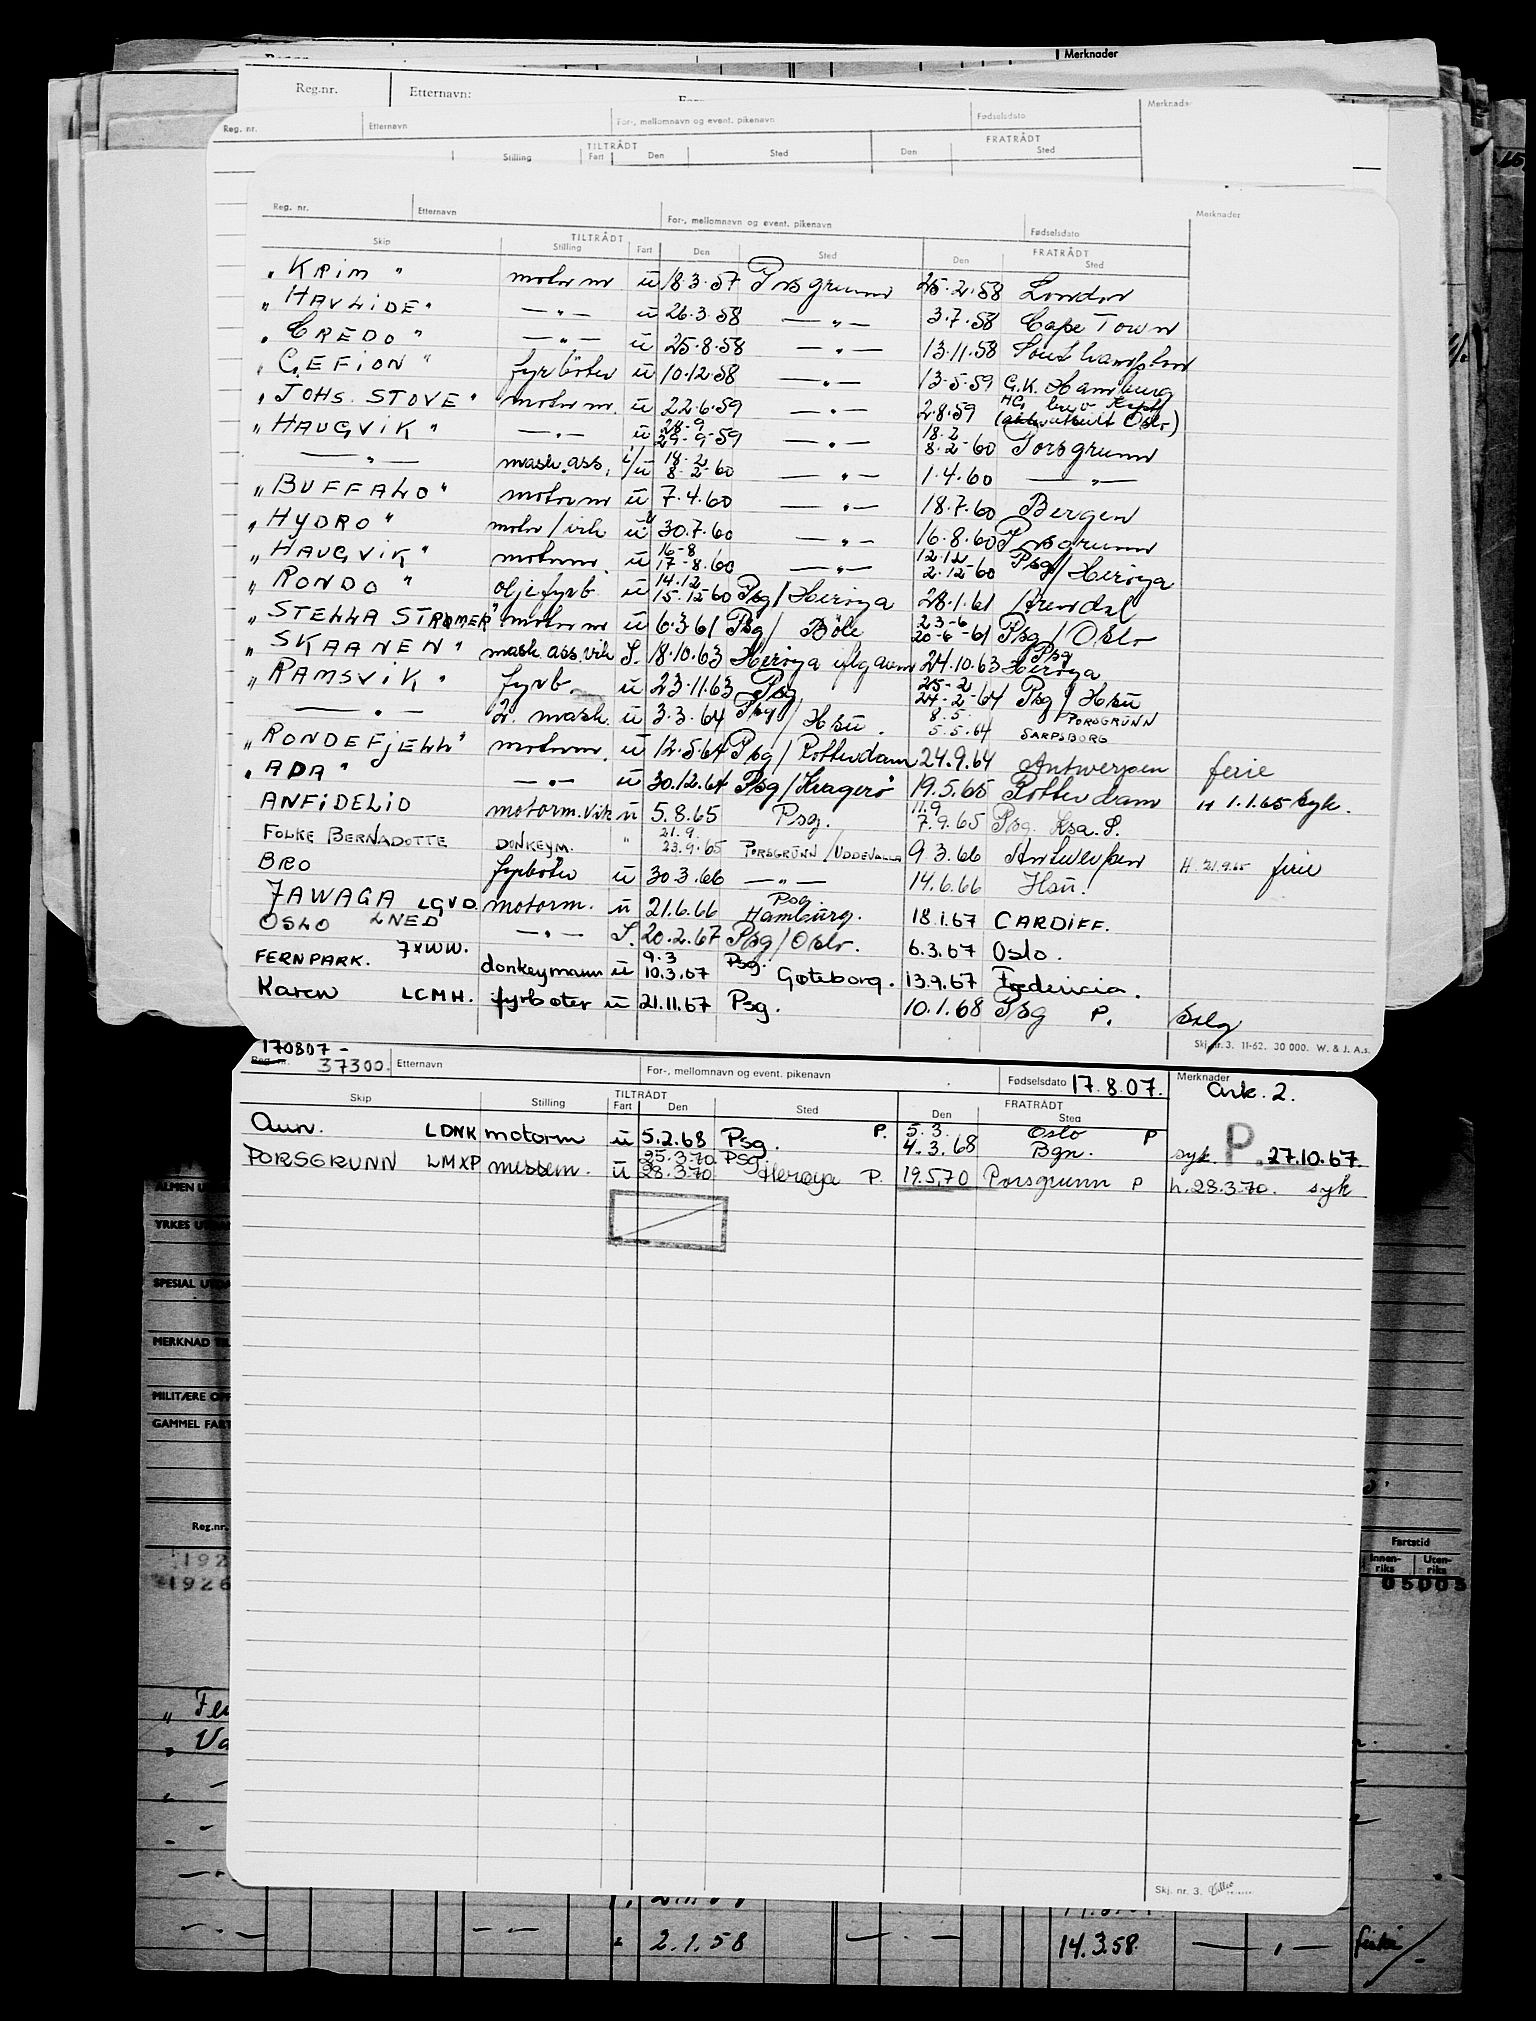 Merknader
Reg.nr. Etternavn:
Reg. nr. Etternavn For-, mellomnavn og event. pikenavn Fødselsdato Merknader
TILTRÅDT FRATRÅDT
Stilling Fart Den Sted Den Sted
Reg. nr. Etternavn For-, mellomnavn og event. pikenavn Fødselsdato Merknader
TILTRÅDT FRATRÅDT
Skip Stilling Fart Den Sted Den Sted
"KRIM" motor m ū 18.3.57 Porsgrunn 25.2.58 London
"HAVLIDE" — " — ū 26.3.58 — " — 3.7.58 Cape Town
"CREDO" — " — ū 25.8.58 — " — 13.11.58 Southampton
"GEFION" fyrböter ū 10.12.58 — " — 13.5.59 G.K. Hamburg
"JOHS. STOVE" motor m. ū 22.6.59 — " — 2.8.59 Oslo)
"HAUGVIK" — " — ū 28-9 29-9-59 — " — 18.2 8-2-60 Porsgrunn
— " — mask.ass. i/ū 18-2 8-2-60 — " — 1.4.60 — " —
"BUFFALO" motor m ū 7.4.60 — " — 18.7.60 Bergen
"HYDRO" motor/vik ū 30.7.60 — " — 16.8.60 Porsgrunn
"HAUGVIK" motorm. ū 16-8 17-8.60 — " — 12.12 2.12-60 Psg/Herøya
"RONDO" oljefyrb ū 14.12 15.12-60 Psg/Herøya 28.1.61 Arendal
"STELLA STRØMER" motor m ū 6.3.61 Psg/ Böle 23-6 20-6-61 Psg/Oslo
"SKAANEN" mask.ass.vik S. 18.10.63 Herøya 24.10.63 Psg Herøya
"RAMSVIK" fyrb. ū 23.11.63 Psg 25-2 24-2-64 Psg/Hsū
— " — 2. mask. ū 3.3.64 Psg/Hsū. 8.5. 5.5.64 PORSGRUNN SARPSBORG
"RONDEFJELL" motorm. ū 12.5.64 Psg/Rotterdam 24.9.64 Antwerpen ferie
"ADA" — " — ū 30.12.64 Psg/Kragerö 19.5.65 Rotterdam H 1.1.65 syk.
ANFIDELIO motorm.vik ū 5.8.65 Psg. 11.9 7.9.65 Psg.
FOLKE BERNADOTTE DONKEYM. " 21.9. 23.9.65 PORSGRUNN/UDDEVALLA 9.3.66 Antwerpen H. 21.9.65 ferie
BRO fyrböter ū 30.3.66 — " — 14.6.66 Hsū.
JAWAGA LGVD motorm. ū 21.6.66 Psg. Hamburg. 18.1.67 CARDIFF.
OSLO LNED — " — S. 20.2.67 Psg/Oslo. 6.3.67 Oslo.
FERNPARK. 7XWW. donkeymann ū 9.3 10.3.67 Psg. Gøteborg. 13.9.67 Fredericia.
Karen LCMH. fyrbøter ū 21.11.67 Psg. 10.1.68 Psg P. Salg
Skj. nr. 3. 11-62. 30 000. W. & J. A.s.
170807-
Reg.nr. 37300. Etternavn For-, mellomnavn og event. pikenavn Fødselsdato 17.8.07. Merknader Ark. 2.
TILTRÅDT FRATRÅDT
Skip Stilling Fart Den Sted Den Sted
Aun. LDNK motorm ū 5.2.68 Psg. P. 5.3. 4.3.68 Oslo Bgn. P syk. P. 27.10.67.
PORSGRUNN LMXP messem. ū 25.3.70 28.3.70 PSG. Herøya P. 19.5.70 Porsgrunn P h.28.3.70. syk
ALMEN U
YRKES U
SPESIAL U
MERKNAD
MILITÆRE OPP
GAMMEL FART
Reg.nr. Fartstid
Innen-riks Uten-riks
192
1926 05005
" Fe
" Va
Skj. nr. 3.
— " — 2.1.58 — " — 14.3.58. — " —